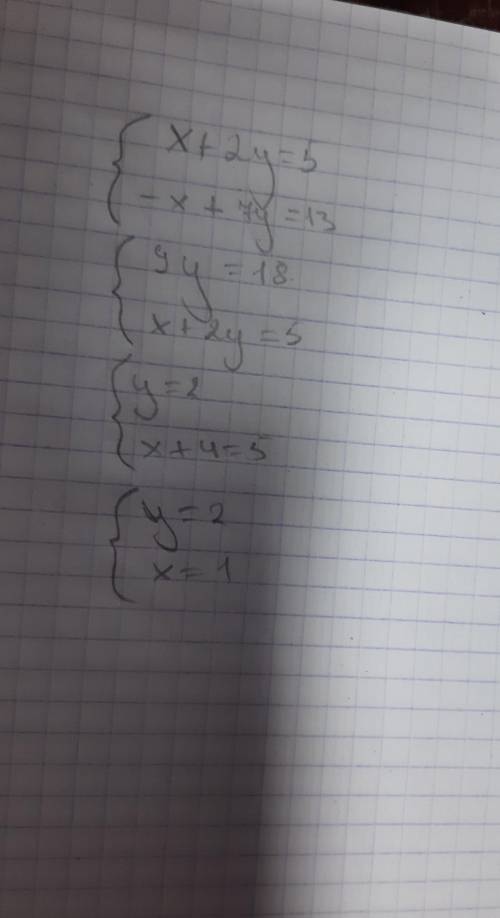 x + 2y = 5
- x + 7y = 13
9y = 18
x + 2y = 5
y = 2
x + 4 = 5
y = 2
x = 1